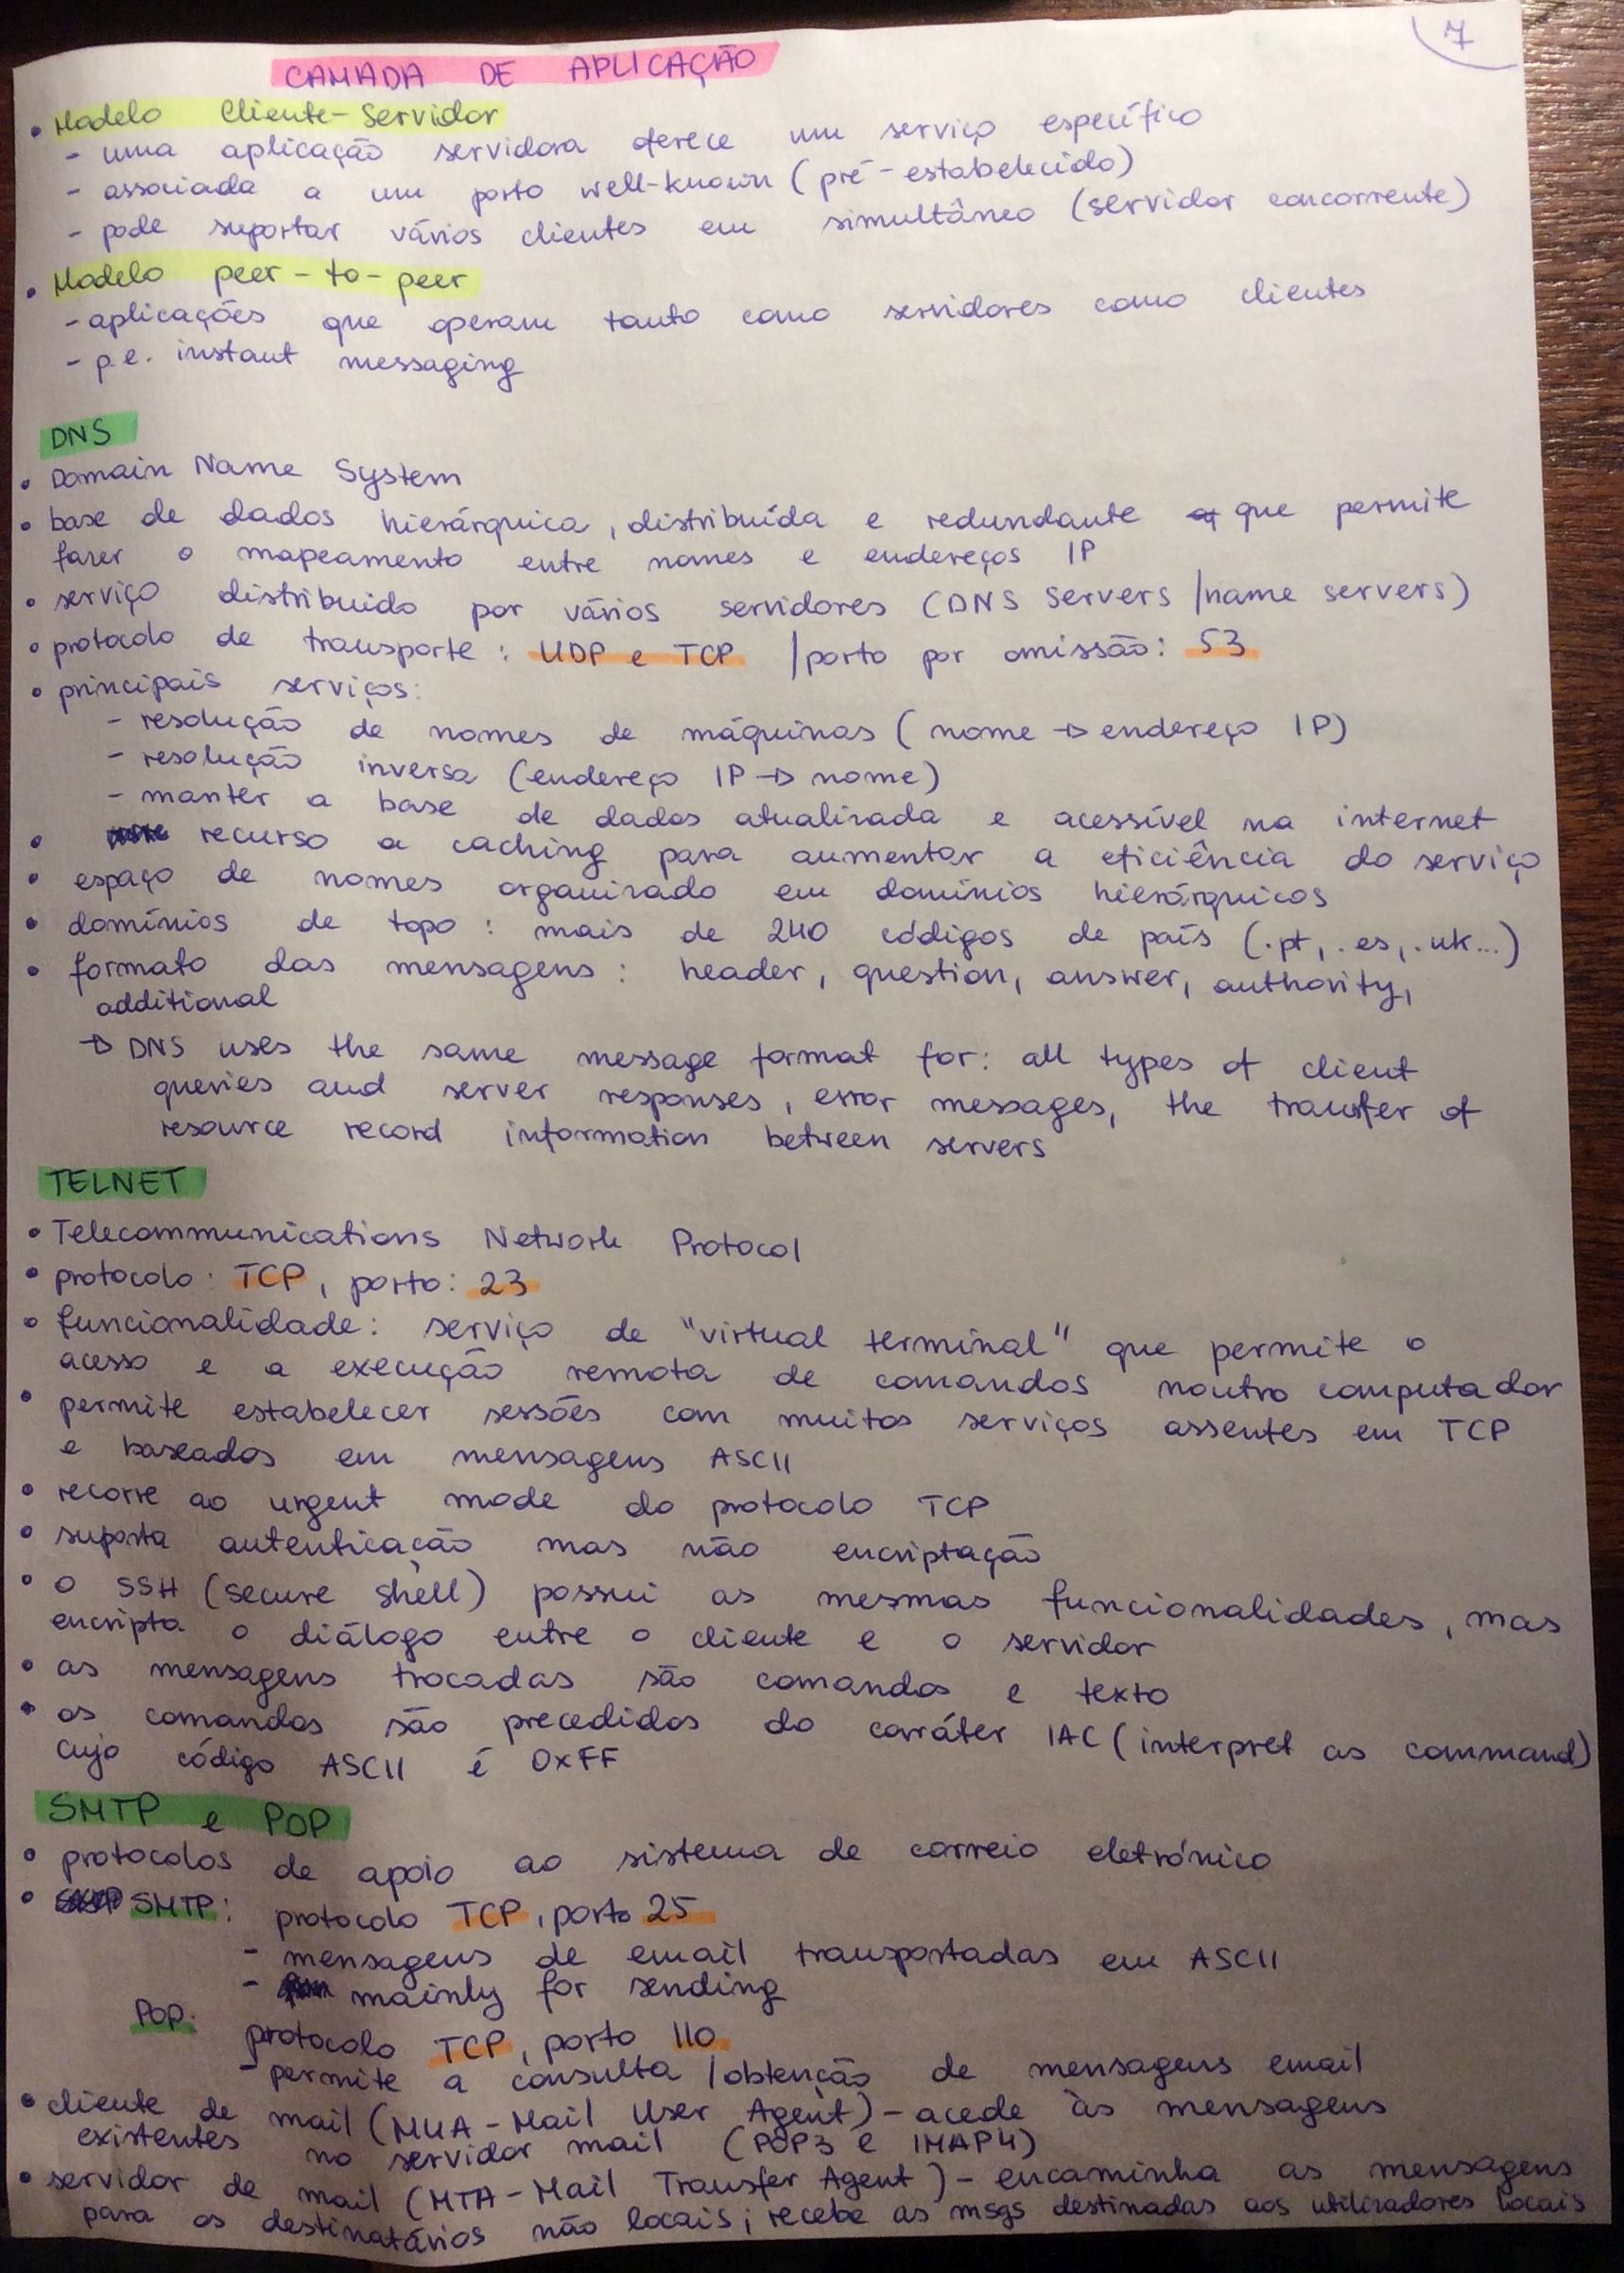 7
CAMADA DE APLICAÇÃO
• Modelo Cliente-Servidor
- uma aplicação servidora oferece um serviço específico
- associada a um porto well-known (pré-estabelecido)
- pode suportar vários clientes em simultâneo (servidor concorrente)
• Modelo peer-to-peer
- aplicações que operam tanto como servidores como clientes
- p.e. instant messaging
DNS
• Domain Name System
• base de dados hierárquica, distribuída e redundante que permite
fazer o mapeamento entre nomes e endereços IP
• serviço distribuido por vários servidores (DNS servers/name servers)
• protocolo de transporte: UDP e TCP /porto por omissão: 53
• principais serviços:
- resolução de nomes de máquinas (nome → endereço IP)
- resolução inversa (endereço IP → nome)
- manter a base de dados atualizada e acessível na internet
• recurso a caching para aumentar a eficiência do serviço
• espaço de nomes organizado em domínios hierárquicos
• domínios de topo: mais de 240 códigos de país (.pt, .es, .uk...)
• formato das mensagens: header, question, answer, authority,
additional
→ DNS uses the same message format for: all types of client
queries and server responses, error messages, the transfer of
resource record information between servers
TELNET
• Telecommunications Network Protocol
• protocolo: TCP, porto: 23
• funcionalidade: serviço de "virtual terminal" que permite o
acesso e a execução remota de comandos noutro computador
• permite estabelecer sessões com muitos serviços assentes em TCP
e baseados em mensagens ASCII
• recorre ao urgent mode do protocolo TCP
• suporta autenticação mas não encriptação
• o SSH (secure shell) possui as mesmas funcionalidades, mas
encripta o diálogo entre o cliente e o servidor
• as mensagens trocadas são comandos e texto
• os comandos são precedidos do caráter IAC (interpret as command)
cujo código ASCII é 0xFF
SMTP e POP
• protocolos de apoio ao sistema de correio eletrónico
• SMTP: protocolo TCP, porto 25
- mensagens de email transportadas em ASCII
- mainly for sending
POP: protocolo TCP, porto 110
- permite a consulta/obtenção de mensagens email
• cliente de mail (MUA - Mail User Agent) - acede às mensagens
existentes no servidor mail (POP3 e IMAP4)
• servidor de mail (MTA - Mail Transfer Agent) - encaminha as mensagens
para os destinatários não locais; recebe as msgs destinadas aos utilizadores locais